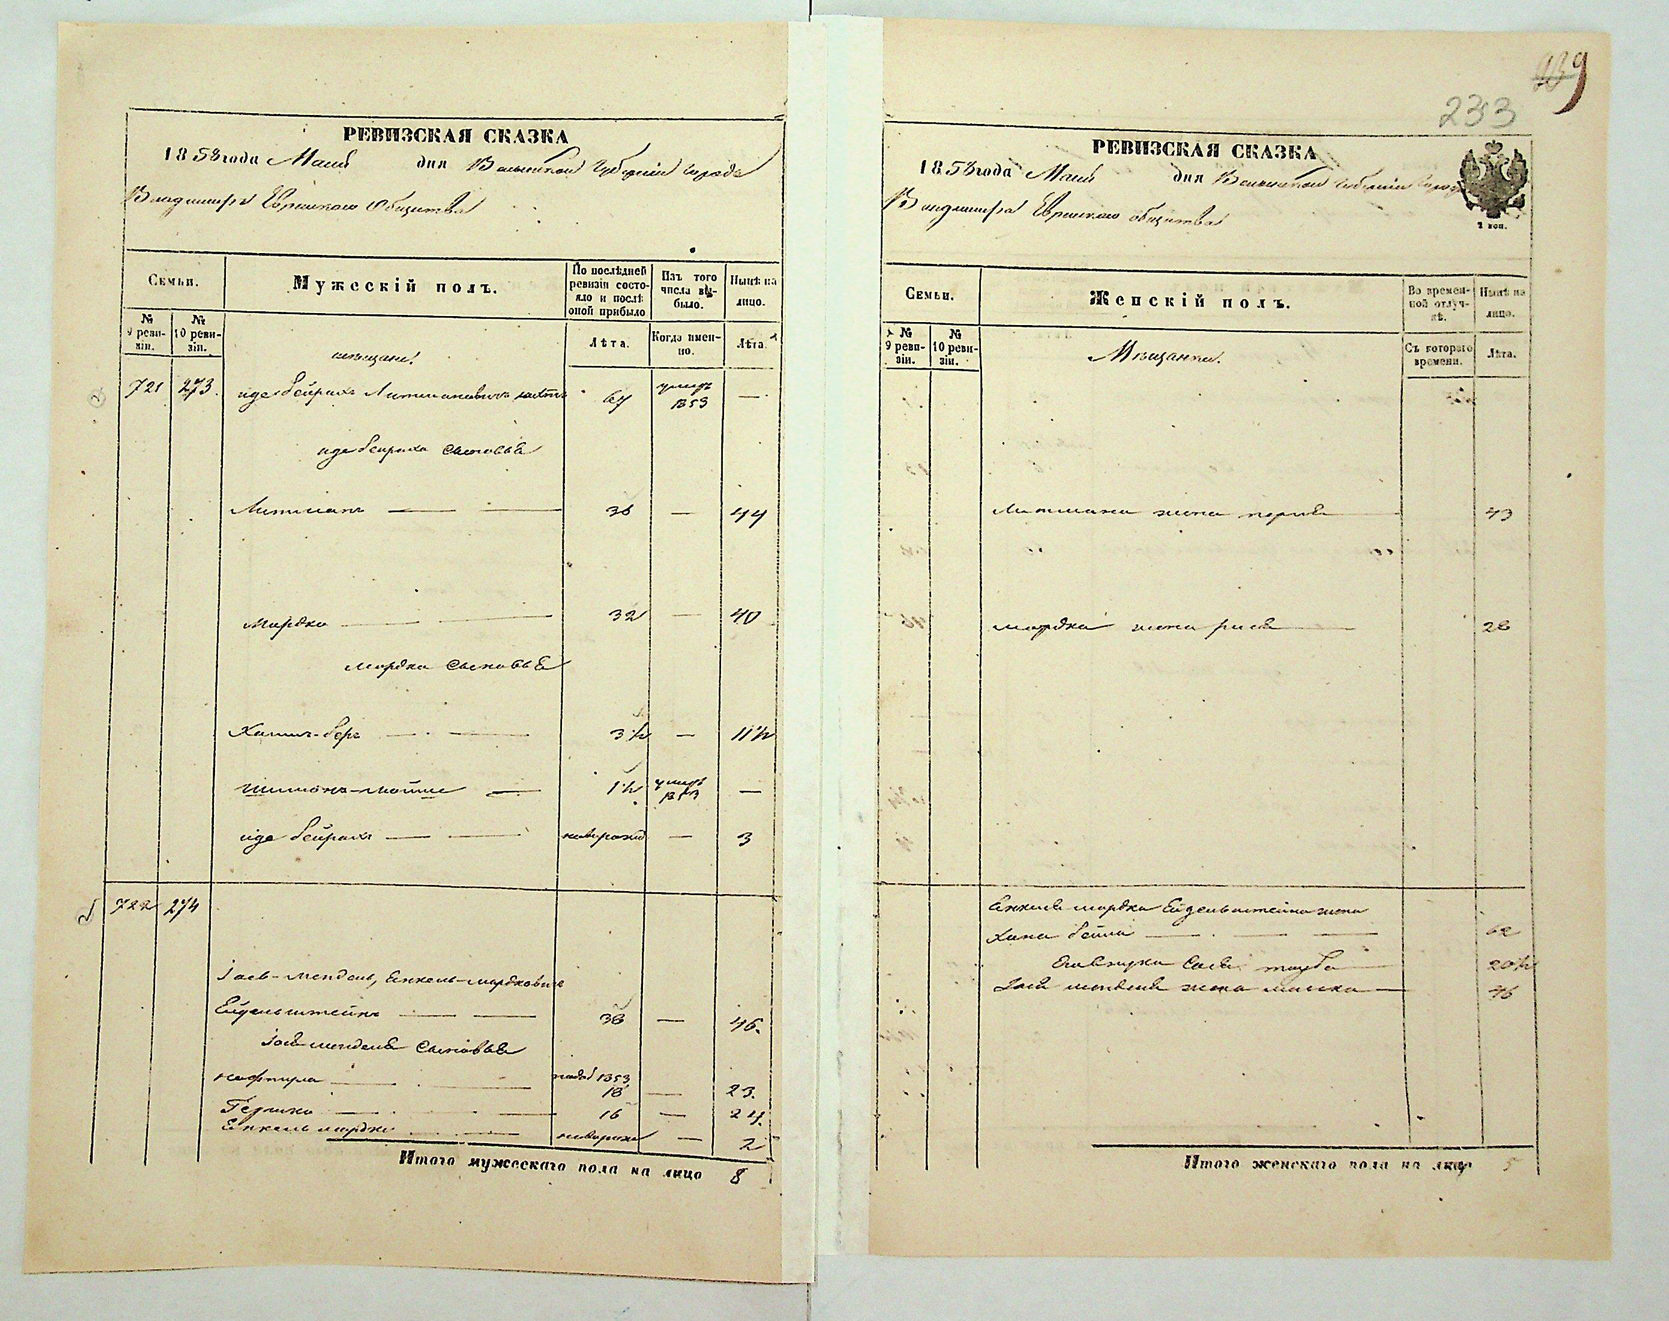 239
233
РЕВИЗСКАЯ СКАЗКА
1858 года Маія дня Волынской губерніи города
Владимира Еврейскаго общества
Семьи.
Мужескій полъ.
По послѣдней ревизіи состояло и послѣ оной прибыло
Изъ того числа выбыло.
Нынѣ на лицо.
№ 9 ревизіи.
№ 10 ревизіи.
Лѣта.
Когда именно.
Лѣта.
мещане
721 273 Иде Бейрахъ Литмановичъ 67 умеръ 1853 —
Иде Бейраха сыновья
Литманъ — — 36 — 44
Мордко — — 32 — 40
Мордка сыновья
Хаимъ-Беръ — — 3½ — 11½
Шимонъ-Мойше — 1½ умеръ 1853 —
Иде Бейрахъ — — новорожд — 3
722 274
Іось-Мендель, Енкель-Мордковичъ
Ейдельштейнъ — — 38 — 46.
Іося Менделя сыновья
Нафтула — — 1853 18 — 23.
Гершко — — 16 — 24.
Енкель Мордко — — новорож — 2
Итого мужескаго пола на лицо 8
РЕВИЗСКАЯ СКАЗКА
1858 года Маія дня Волынской губерніи города
Владимира Еврейскаго общества
2 коп.
Семьи.
Женскій полъ.
Во временной отлучкѣ.
Нынѣ на лицо.
№ 9 ревизіи.
№ 10 ревизіи.
Съ котораго времени.
Лѣта.
Мещанки.
Литмана жена Перля — 43
Мордка жена Рися — 28
Енкеля Мордка Ейдельштейна жена
Хана Бейла — — 62
Сося Тауба — 20½
Іося Менделя жена — 46
Итого женскаго пола на лицо 5